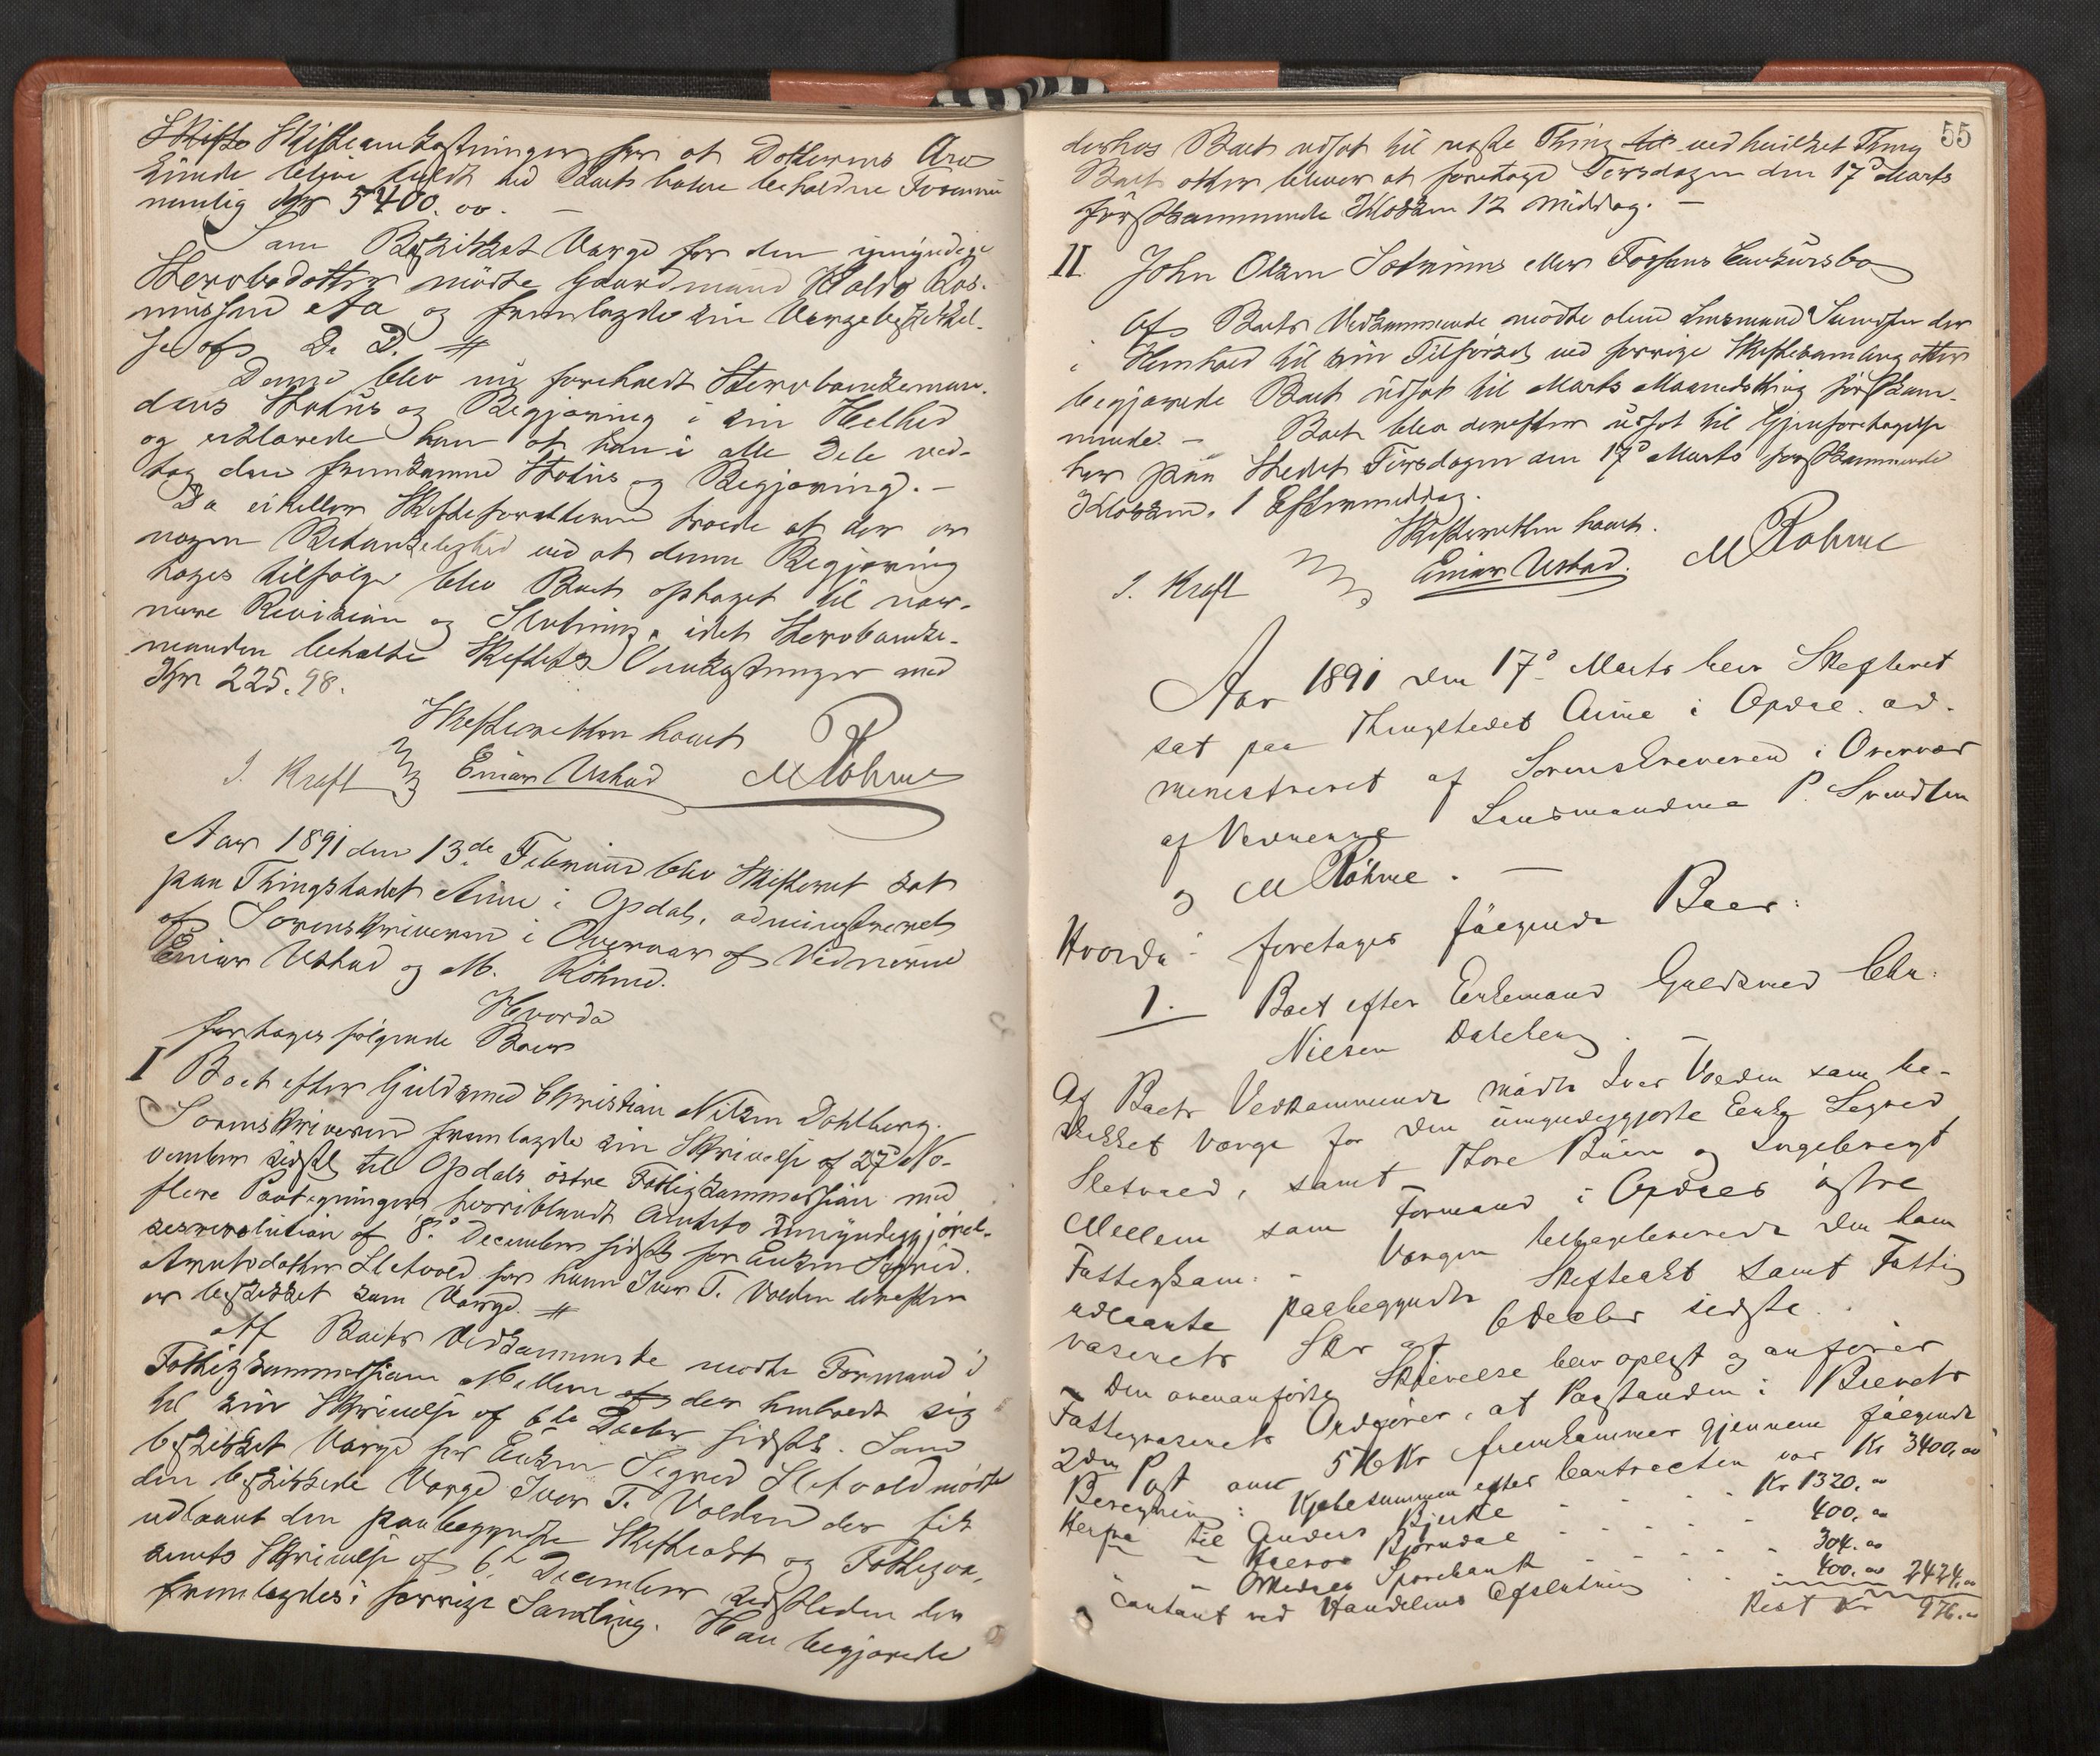 Skifte Skifteomkostninger for at Datterens Arv
kunde blive fuldt ud Boets hele beholdne Formue
nemlig Kr 5400.00. —
Som Beskikket Værge for den umyndige
Stervbodatter mødte Gaardmand Haldo Ras-
mussen Aa og fremlagde sin Værgebeskikkel-
se af D. D. #
Denne blev nu foreholdt Stervboenkeman-
dens Status og Begjæring i sin Helhed
og erklærede han at han i alle Dele ved-
tog den fremkomne Status og Begjæring. —
Da ei heller Skifteforvalteren troede at der er
nogen Betænkelighed ved at denne Begjæring
tages tilfølge blev Boet optaget til nær-
mere Revision og Slutning, idet Stervboenke-
manden betalte Skiftets Omkostninger med
Kr 225.98.
Skifteretten hævet
J. Kraft Einar Ustad M Röhme
Aar 1891 den 13de Februar blev Skifteret sat
paa Thingstedet Aune i Opdal, administreret
af Sorenskriveren i Overvær af Vidnerne
Einar Ustad og M. Röhme.
Hvorda
foretages følgende Boer
I Boet efter Guldsmed Christian Nilsen Dahlberg.
Sorenskriveren fremlagde sin Skrivelse af 27 No-
vember sidstl. til Opdals østre Fattigkommission med
flere Paategninger hvoriblandt Amtets Umyndiggjørel-
sesresolution af 8de December sidstl. for Enken Sigrid
Arntsdatter Sletvold, for hvem Iver T. Volden derefter
er beskikket som Værge. #
Af Boets Vedkommende mødte Formand i
Fattigkommissionen Mellem af der henholdt sig
til sin Skrivelse af 6te Decbr sidstl. Som
beskikket Værge for Enken Sigrid Sletvold mødte
den beskikkede Værge Iver T. Volden der fik
udlaant den paabegyndte Skifteakt og Fattigvæ-
senets Skrivelse af 6te December sidstleden der
fremlagdes i forrige Samling. Han begjærede
55
derhos Boet udsat til næste Thing til ved hvilket Thing
Boet atter bliver at foretage Tirsdagen den 17de Marts
førstkommende Klokken 12 Middag. —
II. John Olsen Sætrums eller Fossens Concursbo
Af Boets Vedkommende mødte alene Lensmand Svendsen der
i Henhold til sin Tilførsel ved forrige Skiftesamling atter
begjærede Boet udsat til Marts Maanedsthing førstkom-
mende. — Boet blev derefter udsat til Gjenforetagelse
her paa Stedet Tirsdagen den 17de Marts førstkommende
Klokken 1 Eftermiddag.
Skifteretten hævet.
J. Kraft Einar Ustad. M Röhme
Aar 1891 den 17de Marts blev Skifteret
sat paa Thingstedet Aune i Opdal ad-
ministreret af Sorenskriveren i Overvær
af Vidnerne Lensmændene P. Svendsen
og M Röhme. —
Hvorda: foretages følgende Boer:
1. Boet efter Enkemand Guldsmed Chr.
Nielsen Dahlberg. —
Af Boets Vedkommende mødte Iver Volden som be-
skikket Værge for den umyndiggjorte Enke Segred
Sletvold, samt Thore Buen og Ingebregt
Mellem som Formand i Opdals østre
Fattigkom. – Værgen tilbageleverede den ham
udlaante paabegyndte Skifteakt samt Fattig
væsenets Skr af 6 Decbr sidste.
– Den ovenanførte Skrivelse blev oplæst og anfører
Fattigvæsenets Ordfører, at Paastanden i Brevets
2den Post om 576 Kr fremkommer gjennem følgende
Beregning: Kjøbesummen efter Contracten var Kr 3400,00
Herpaa til Anders Bjerke - - - Kr 1320.00
" – Halvor Bjørndal - - - 400.00
" – Opdals Sparebank - - - 304.00
Contant ved Handelens Afslutning - - 400.00 2424.00
Rest Kr 976.00